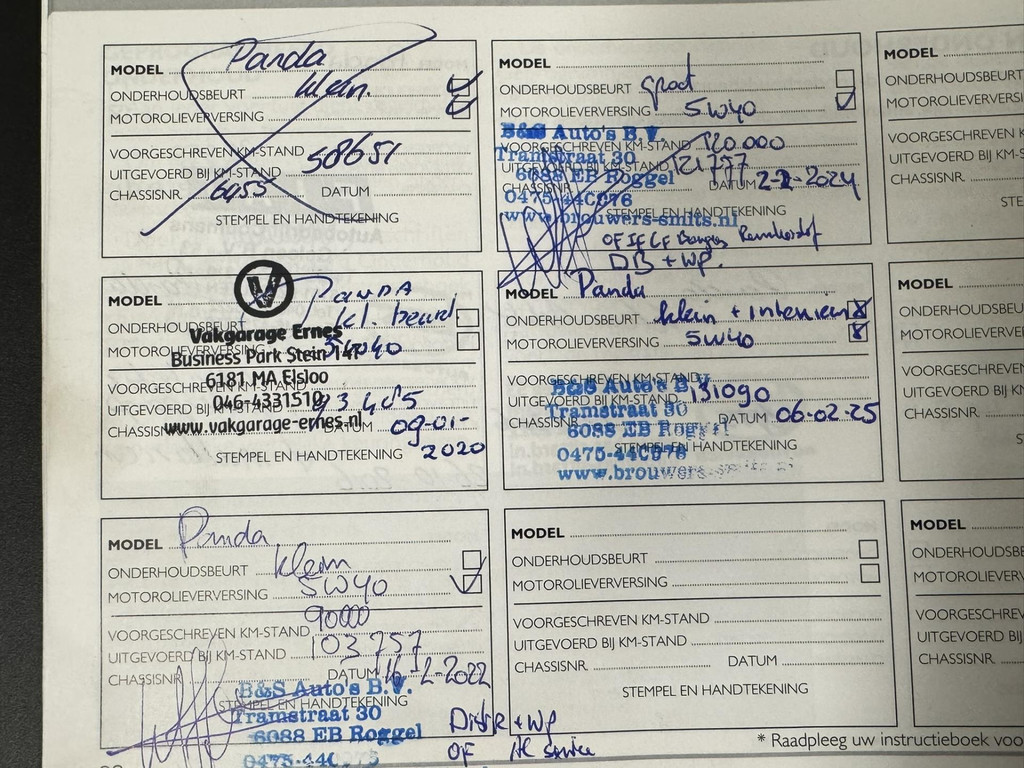 MODEL Panda
ONDERHOUDSBEURT klein.
MOTOROLIEVERVERSING
VOORGESCHREVEN KM-STAND
UITGEVOERD BIJ KM-STAND 58651
CHASSISNR. 6455 DATUM
STEMPEL EN HANDTEKENING
MODEL PANDA
ONDERHOUDSBEURT kl. beurt
Vakgarage Ernes
MOTOROLIEVERVERSING 5W40
Business Park Stein 141
6181 MA Elsloo
VOORGESCHREVEN KM-STAND
046-4331510
UITGEVOERD BIJ KM-STAND 93405
www.vakgarage-ernes.nl
CHASSISNR. DATUM 09-01-
2020
STEMPEL EN HANDTEKENING
MODEL Panda
ONDERHOUDSBEURT klein
MOTOROLIEVERVERSING 5W40
90000
VOORGESCHREVEN KM-STAND
UITGEVOERD BIJ KM-STAND 103757
CHASSISNR. DATUM 16-2-2022
STEMPEL EN HANDTEKENING
B&S Auto's B.V.
Tramstraat 30
6088 EB Roggel
0475-440
Distr + WP
OF service
MODEL
ONDERHOUDSBEURT groot
MOTOROLIEVERVERSING 5W40
B&S Auto's B.V.
VOORGESCHREVEN KM-STAND 120.000
Tramstraat 30
UITGEVOERD BIJ KM-STAND 121777
6088 EB Roggel
CHASSISNR. DATUM 2-2-2024
0475-440976
STEMPEL EN HANDTEKENING
www.brouwers-smits.nl
OF IF LF Bougies
DB + WP.
MODEL Panda
ONDERHOUDSBEURT klein + interieur
MOTOROLIEVERVERSING 5W40
VOORGESCHREVEN KM-STAND
B&S Auto's B.V.
UITGEVOERD BIJ KM-STAND 131090
Tramstraat 30
CHASSISNR. DATUM 06-02-25
6088 EB Roggel
STEMPEL EN HANDTEKENING
0475-440976
www.brouwers-smits.nl
MODEL
ONDERHOUDSBEURT
MOTOROLIEVERVERSING
VOORGESCHREVEN KM-STAND
UITGEVOERD BIJ KM-STAND
CHASSISNR. DATUM
STEMPEL EN HANDTEKENING
MODEL
ONDERHOUDSBEURT
MOTOROLIEVERVERSI
VOORGESCHREVEN K
UITGEVOERD BIJ KM-S
CHASSISNR.
STE
MODEL
ONDERHOUDSBEU
MOTOROLIEVERVE
VOORGESCHREVEN
UITGEVOERD BIJ KM
CHASSISNR.
ST
MODEL
ONDERHOUDSBE
MOTOROLIEVERV
VOORGESCHREV
UITGEVOERD BIJ K
CHASSISNR.
* Raadpleeg uw instructieboek voo